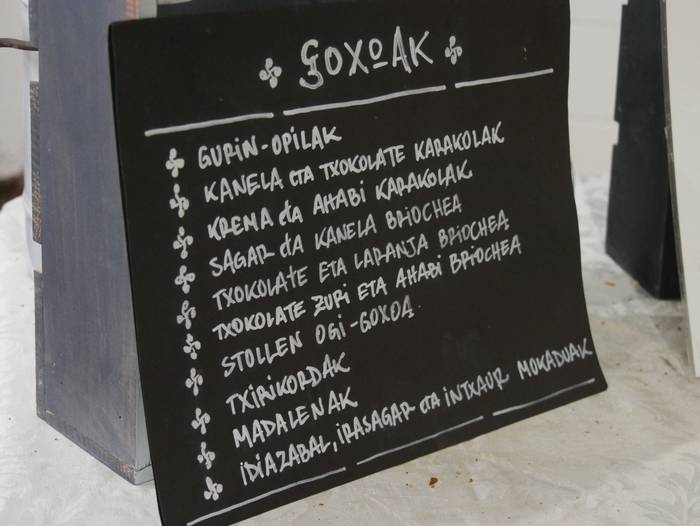 GOXOAK
GURIN-OPILAK
KANELA ETA TXOKOLATE KARAKOLAK
KREMA ETA AHABI KARAKOLAK
SAGAR ETA KANELA BRIOCHEA
TXOKOLATE ETA LARANJA BRIOCHEA
TXOKOLATE ZURI ETA AHABI BRIOCHEA
STOLLEN OGI-GOXOA
TXIRIKORDAK
MADALENAK
IDIAZABAL, IRASAGAR ETA INTXAUR MOKADUAK